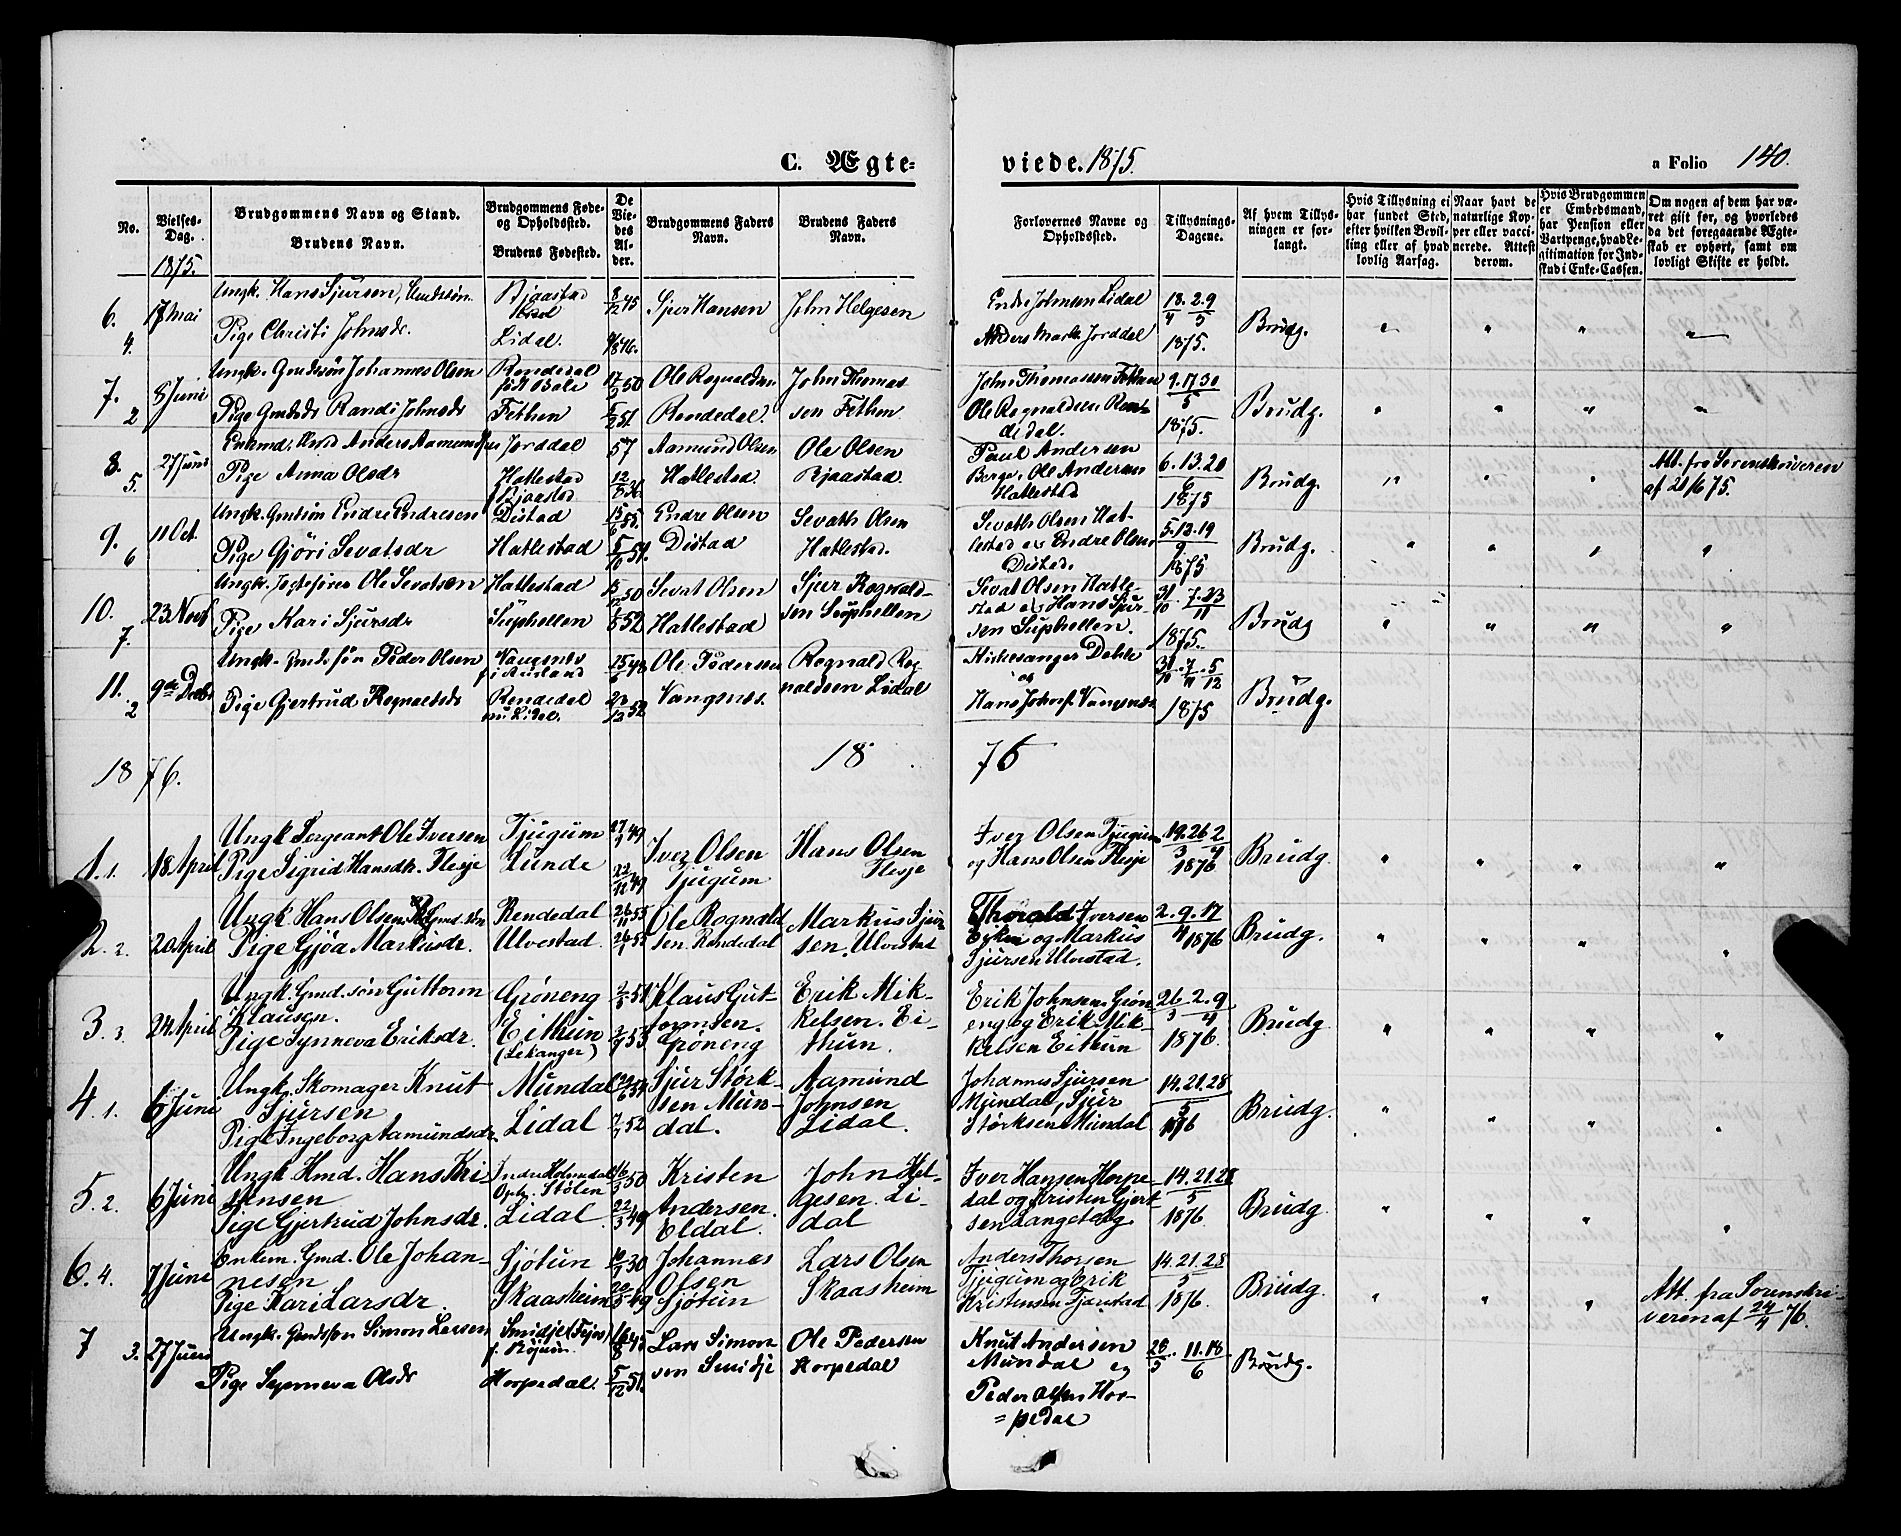 C. Ægte-
viede. 1875.
a Folio 140.
No.
Vielses-Dag.
1875.
Brudgommens Navn og Stand.
Brudens Navn.
Brudgommens Føde- og Opholdssted.
Brudens Fødested.
De Viedes Alder.
Brudgommens Faders Navn.
Brudens Faders Navn.
Forlovernes Navne og Opholdssted.
Tillysnings-Dagene.
Af hvem Tillysningen er forlangt.
Hvis Tillysning ei har fundet Sted, efter hvilken Bevilling eller af hvad lovlig Aarsag.
Naar havt de naturlige Kopper eller vaccinerede. Attest derom.
Hvis Brudgommen er Embedsmand, har Pension eller Vartpenge, hvad Legitimation for Indskud i Enke-Cassen.
Om nogen af dem har været gift før, og hvorledes da det foregaaende Ægteskab er ophørt, samt om lovligt Skifte er holdt.
6. 4. 17 Mai
Ungk. Hans Sjursen,
Pige Christi Johnsdr.
Bjaastad
Lidal.
Sjur Hansen
John Helgesen
Endre Johnsen Lidal
Jorddal
18. 2. 9
4 5
1875.
Brudg.
7. 2 8 Juni
Ungk. Gmdsøn Johannes Olsen
Pige Gmdsdr Randi Johnsdr
Rendedal
Fethen
17/3 50
Ole Rognaldsen
Rendedal.
John Thomas
sen Fethen
John Thomassen Fethen
Ole Rognaldsen Ren-
dedal.
9. 17 30
5
1875.
Brudg.
8. 5. 27 Juni
Enkmd. Anders Aamundsen
Pige Anna Olsdr
Jorddal
Hatlestad
f Bjaastad
57
12/8 36
Aamund Olsen
Hatlestad.
Ole Olsen
Bjaastad.
Paul Andersen
Berge, Ole Andersen
Hatlestad
6. 13. 20
6
1875
Brudg.
Att. fra Sorenskriveren
af 21/6 75.
9. 6 11 Oct.
Ungk. Gmdsøn Endre Endresen
Pige Gjöri Sevatsdr
Distad
Hatlestad
5/10 51.
Endre Olsen
Distad
Sevath Olsen
Hatlestad.
Sevath Olsen Hat-
lestad og Endre Olsen
Distad.
5. 12. 19
9
1875
Brudg.
10. 7. 23 Novb
Ungk. Ole Sevatsen
Pige Kari Sjursdr
Hatlestad
Suphellen
50
52
Sevat Olsen
Hatlestad
Sjur Rognald-
sen Suphellen
Sevat Olsen Hatle-
stad og Hans Sjur-
sen Suphellen.
31/10 . 7. 23
11
1875.
Brudg
11. 2 9de Decbr
Ungk. Gmdssøn Peder Olsen
Pige Gjertrud Rognaldsdr
Vangsnes
f i Aurland
Rendedal
nu Lidal.
23/12 52
Ole Pedersen
Vangsnæs.
Rognald Rog
naldsen Lidal
Kirkesanger Dahle
og
Hans Johns. Vangsnæs
31/10 . 7/11 . 5/12
1875
Brudg.
1876.
1876
1. 1. 18 April
Ungk. Sergeant Ole Iversen
Pige Sigrid Hansdtr. Flesje
Tjugum
Lunde
22/12 49
Iver Olsen
Tjugum
Hans Olsen
Flesje
Iver Olsen Tjugum
og Hans Olsen Flesje
19. 26 2
3 4
1876
Brudg.
2. 2. 20 April
Ungk. Hans Olsen Gmd. søn
Pige Gjöa Markusdr.
Rendedal
Ulvestad.
26/11 53
Ole Rognald
sen. Rendedal
Markus Sjur
sen. Ulvestad
Thorald Iversen
og Markus
Sjursen Ulvestad.
2. 9. 17
4 1876
Brudg.
3. 3. 24 April
Ungk. Gmd. søn Guttorm
Klausen.
Pige Synneva Eriksdr.
Grøneng
Eithun
(Lekanger)
Klaus Gut-
tormsen.
Grøneng
Erik Mik-
kelsen. Ei-
thun.
Erik Johnsen Grøn-
eng og Erik Mik-
kelsen Eithun
26. 2. 9
3 4
1876.
Brudg.
4. 1. 6 Juni
Ungk. Skomager Knut
Sjursen
Pige Ingeborg Aamundsdr.
Mundal
Lidal
52
Sjur Størk-
sen Mun-
dal.
Aamund
Johnsen
Lidal.
Johannes Sjursen
Mundal, Sjur
Størksen Mundal
14. 21. 28
5
1876
Brudg.
5. 2. 6 Juni
Ungk. Hmd. Hans Kri
stensen
Pige Gjertrud Johnsdr.
Indre Holmedal
Oph. Stölen
Lidal.
16/3 50
22/3 49
Kristen
Andersen.
Eldal.
John Hel-
gesen. Li-
dal
Iver Hansen Horpe-
dal og Kristen Gjert-
sen
14. 21. 28
5
1876.
Brudg
6. 4. 7 Juni
Enkem. Gmd. Ole Johan-
nesen
Pige Kari Larsdr.
Sjötun
Skaasheim
30
49
Johannes
Olsen
Sjötun
Lars Olsen
Skaasheim
Anders Thorsen
Tjugum og Erik
Kristensen Tjaastad
14. 21. 28
5
1876.
Brudg.
Att. fra Sorenskri
veren af 24/4 76.
7 3. 27 Juni
Ungk. Gmdssøn Simon Larsen
Pige Synneva Olsdr
Smidje (Fejos)
Horpedal.
5/12 51.
Lars Simon
sen Smidje
Ole Pedersen
Horpedal
Knut Andersen
Mundal og
Peder Olsen Hor-
=pedal
28/5 . 11. 18
6
Brudg.